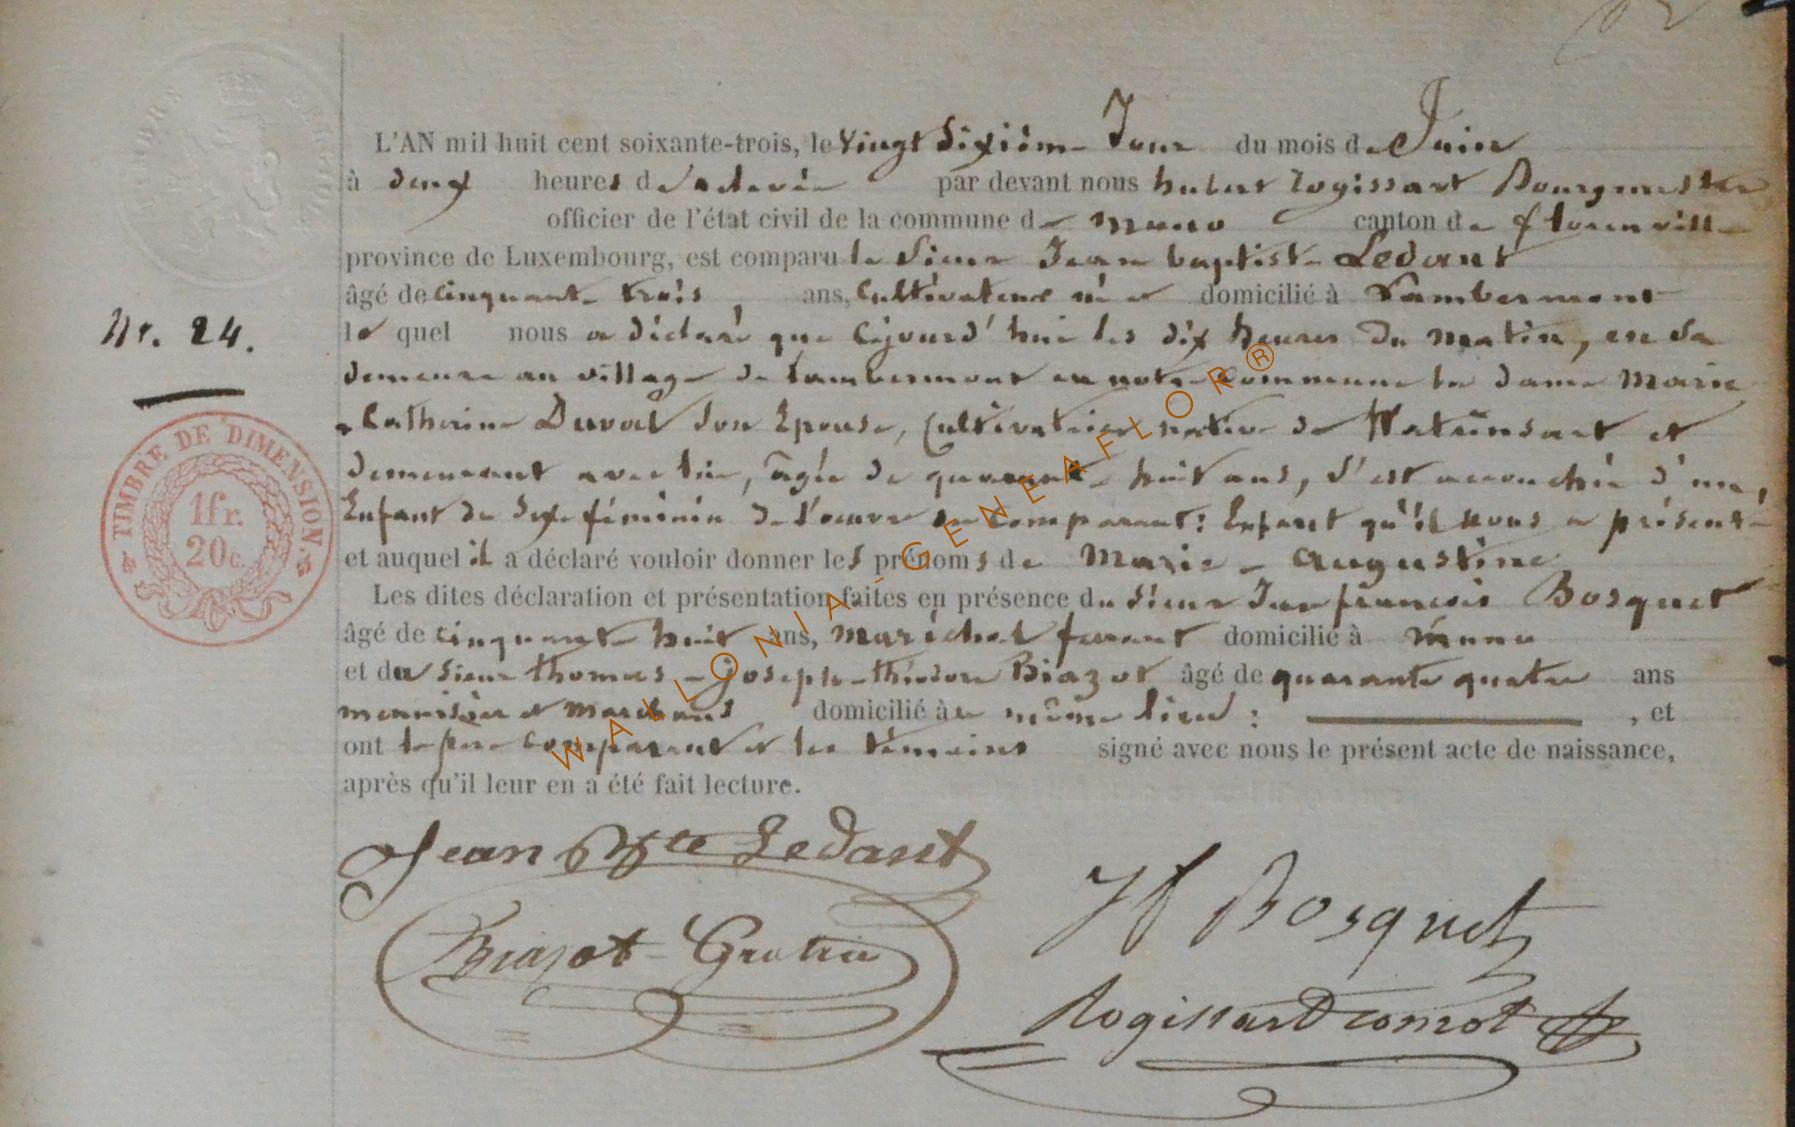 L'AN mil huit cent soixante-trois, le Vingt Sixième Jour du mois de Juin
à deux heures de par devant nous hubert Rogissart Bourgmestre
officier de l'état civil de la commune de Muno canton de florenville
province de Luxembourg, est comparu le Sieur Jean baptiste Ledant
âgé de cinquante trois ans, Cultivateur né et domicilié à Lambermont
Nr. 24.
le quel nous a déclaré que Cejourd'hui les dix heures du matin, en sa
demeure au village de Lambermont en notre Commune la dame Marie
Catherine Duval son Epouse, Cultivatrice native de Watrinsart et
demeurant avec lui, âgée de quarante huit ans, s'est accouchée d'un
Enfant du Sexe féminin de l'oeuvre du Comparant: Enfant qu'il nous a présenté
et auquel il a déclaré vouloir donner les prénoms de Marie - Augustine
Les dites déclaration et présentation faites en présence du sieur Jean françois Bosquet
âgé de cinquante huit ans, Maréchal ferrant domicilié à Muno
et du sieur thomas - joseph - théodore Biazot âgé de quarante quatre ans
menuisier et Marchand domicilié à même lieu : , et
ont le père comparant et les témoins signé avec nous le présent acte de naissance,
après qu'il leur en a été fait lecture.
TIMBRE DE DIMENSION.
1fr.
20c.
WALLONIA-GENEAFLOR®
Jean Bte Ledant
Bosquet
Biazot
Rogissart